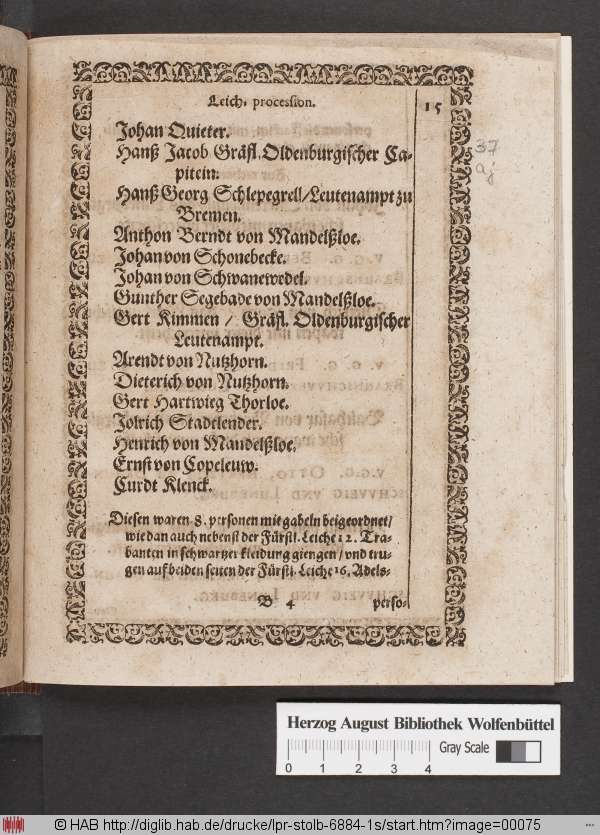 Leich, procession.
15
37
Johan Quieter.
Hanß Jacob Gräfl. Oldenburgischer Ca-
pitein.
Hanß Georg Schlepegrell/Leutenampt zu
Bremen.
Anthon Berndt von Mandelßloe.
Johan von Schonebecke.
Johan von Schwanewedel.
Gunther Segebade von Mandelßloe.
Gert Kimmen / Gräfl. Oldenburgischer
Leutenampt.
Arendt von Nutzhorn.
Dieterich von Nutzhorn.
Gert Hartwieg Thorloe.
Jolrich Stadtlender.
Henrich von Mandelßloe.
Ernst von Copeleuw.
Curdt Klenck.
Diesen waren 8. personen mit gabeln beigeordnet/
wie dan auch nebenst der Fürstl. Leiche 12. Tra-
banten in schwartzer kleidung giengen / vnd tru-
gen auf beiden seiten der Fürstl. Leiche 16. Adels-
B 4 perso-
Herzog August Bibliothek Wolfenbüttel
Gray Scale
0 1 2 3 4
© HAB http://diglib.hab.de/drucke/lpr-stolb-6884-1s/start.htm?image=00075